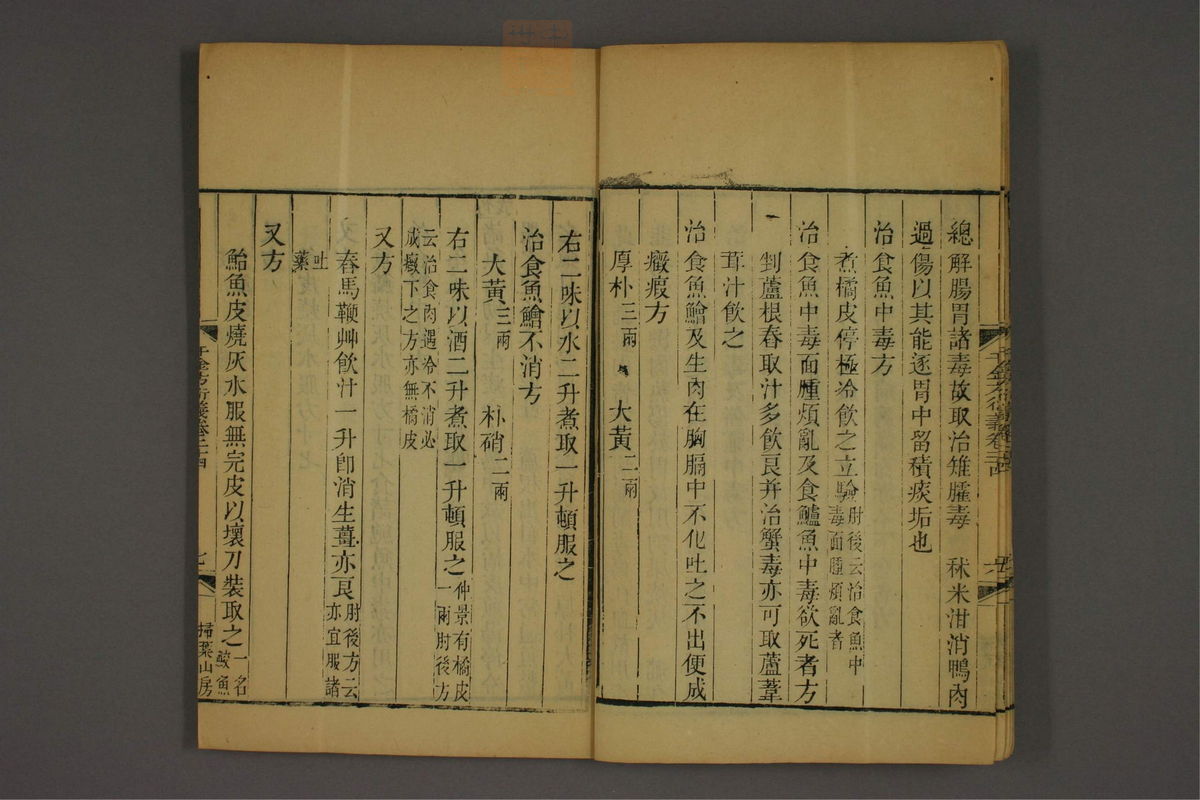 總解腸胃諸毒故取治雉臛毒　秫米泔消鴨肉
過傷以其能逐胃中留積痰垢也
治食魚中毒方
煮橘皮停極冷飲之立驗肘後云治食魚中毒面腫煩亂者
治食魚中毒面腫煩亂及食鱸魚中毒欲死者方
剉蘆根舂取汁多飲良并治蟹毒亦可取蘆葦
茸汁飲之
治食魚鱠及生肉在胸膈中不化吐之不出便成
癥瘕方
厚朴三兩　大黃二兩
右二味以水二升煮取一升頓服之
治食魚鱠不消方
大黃三兩　朴硝二兩
右二味以酒二升煮取一升頓服之仲景有橘皮一兩肘後方
云治食肉遇冷不消必成癥下之方亦無橘皮
又方
舂馬鞭艸飲汁一升卽消生薑亦良肘後方云亦宜服諸
吐藥
又方
鮐魚皮燒灰水服無完皮以壞刀裝取之一名鮫魚
千金方衍義卷二十四
七
掃葉山房